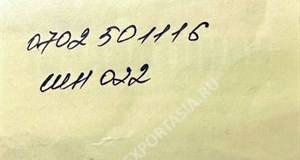 0702 501116
ШН 022
EXPORTASIA.RU